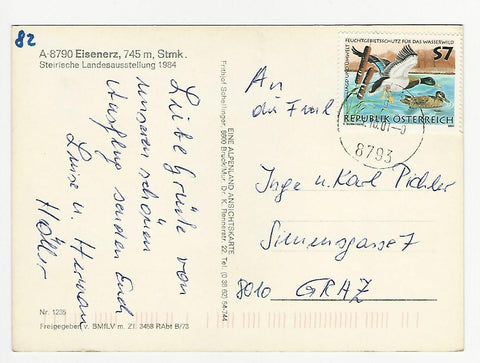 82
A-8790 Eisenerz, 745 m, Stmk.
Steirische Landesausstellung 1984
Liebe Grüße von
unserem schönen
Ausflug senden Euch
Luise u. Herman
Höller
Nr. 1235
Freigegeben v. BMfLV m. Zl. 3458 RAbt B/73
EINE ALPENLAND ANSICHTSKARTE
Frithjof Schellinger, 8600 Bruck/Mur, Dr. K. Rennerstr. 22, Tel. (0 38 62)
FEUCHTGEBIETSSCHUTZ FÜR DAS WASSERWILD
S7
JAGD UND UMWELT
REPUBLIK ÖSTERREICH
8793
An
die Fam.
Inge u. Karl Pichler
8010 GRAZ